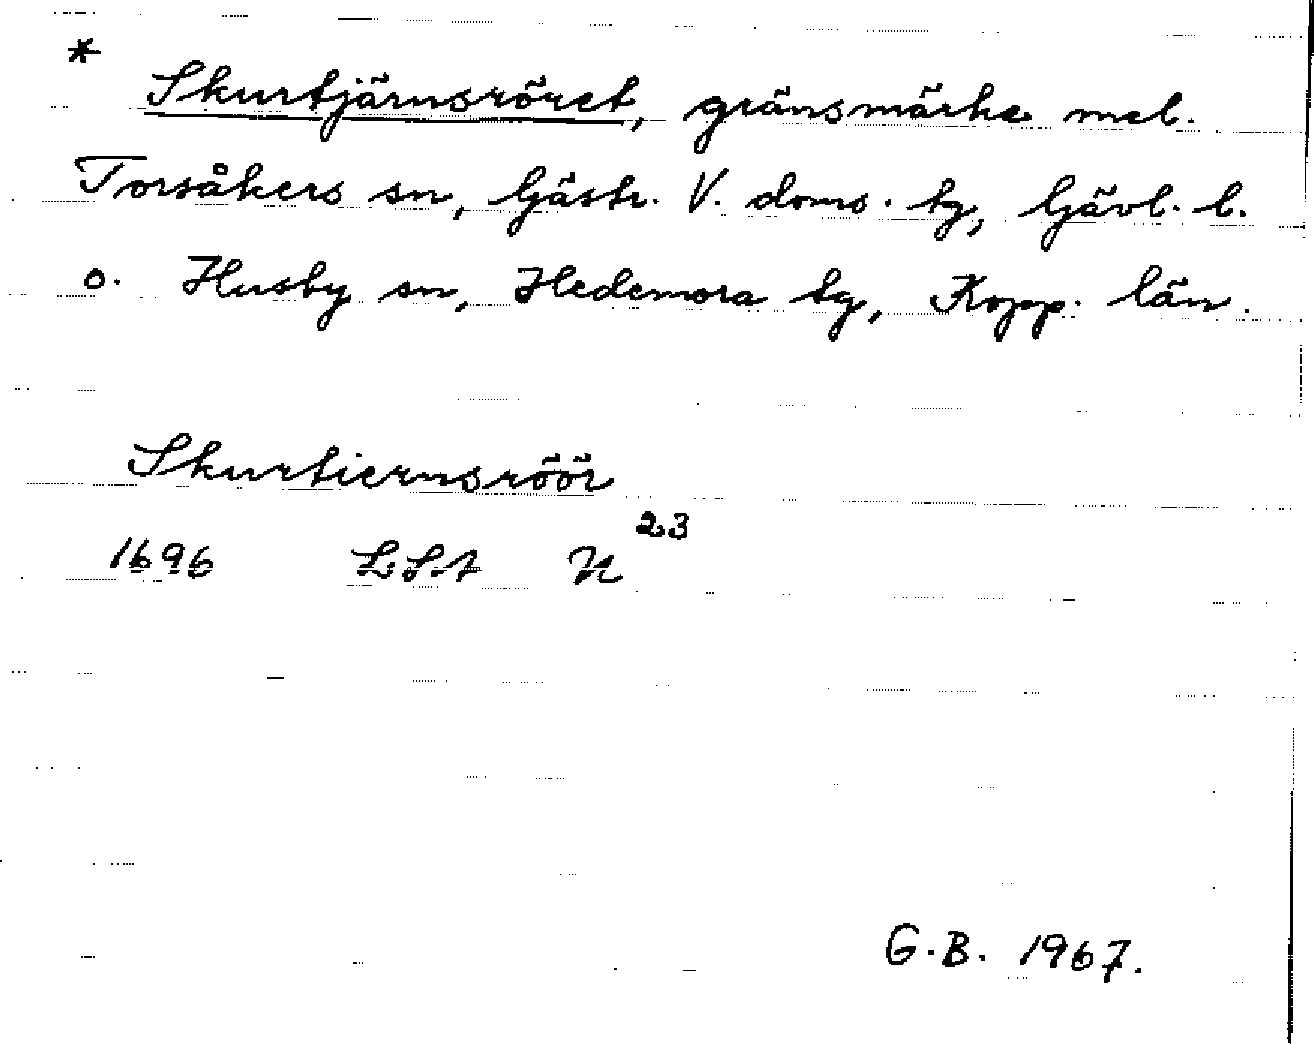 * Skurtjärnsröret, gränsmärke mel.
Torsåkers sn, Gästr. V. doms. tg, Gävl. l.
o. Husby sn, Hedemora tg, Kopp. län.
Skurtiernsröör
1696 LSA N 23
G.B. 1967.